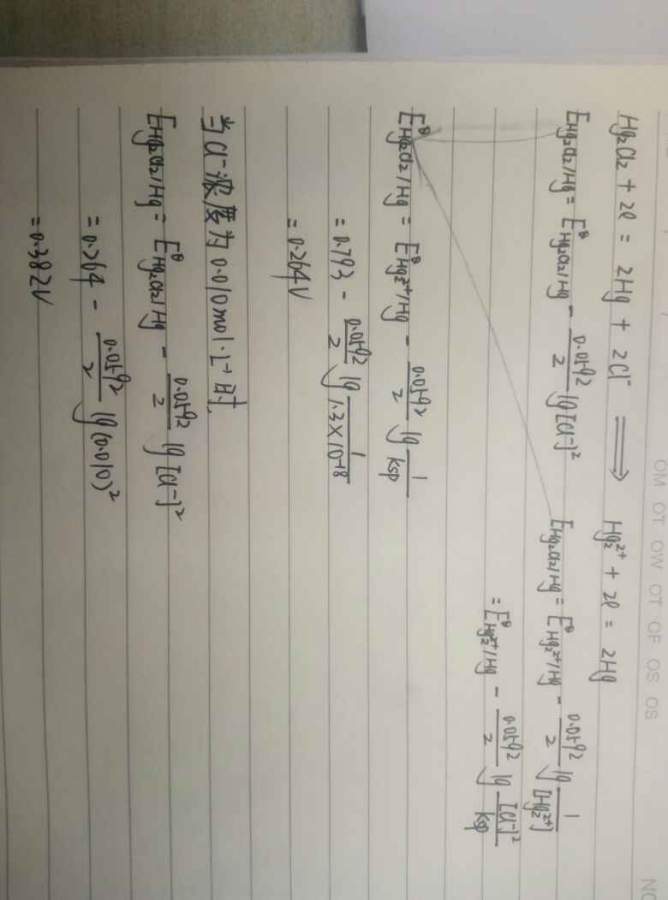 Hg₂Cl₂ + 2e = 2Hg + 2Cl⁻ ⟹ Hg₂²⁺ + 2e = 2Hg
E_Hg₂Cl₂/Hg = E^θ_Hg₂Cl₂/Hg - 0.0592/2 lg[Cl⁻]² E_Hg₂Cl₂/Hg = E^θ_Hg₂²⁺/Hg - 0.0592/2 lg 1/[Hg₂²⁺]
= E^θ_Hg₂²⁺/Hg - 0.0592/2 lg [Cl⁻]²/ksp
E^θ_Hg₂Cl₂/Hg = E_Hg₂²⁺/Hg - 0.0592/2 lg 1/ksp
= 0.793 - 0.0592/2 lg 1/1.3×10⁻¹⁸
= 0.264V
当Cl⁻浓度为0.010mol·L⁻¹时
E_Hg₂Cl₂/Hg = E^θ_Hg₂Cl₂/Hg - 0.0592/2 lg[Cl⁻]²
= 0.264 - 0.0592/2 lg(0.010)²
= 0.382V
OM OT OW OT OF OS OS
NO